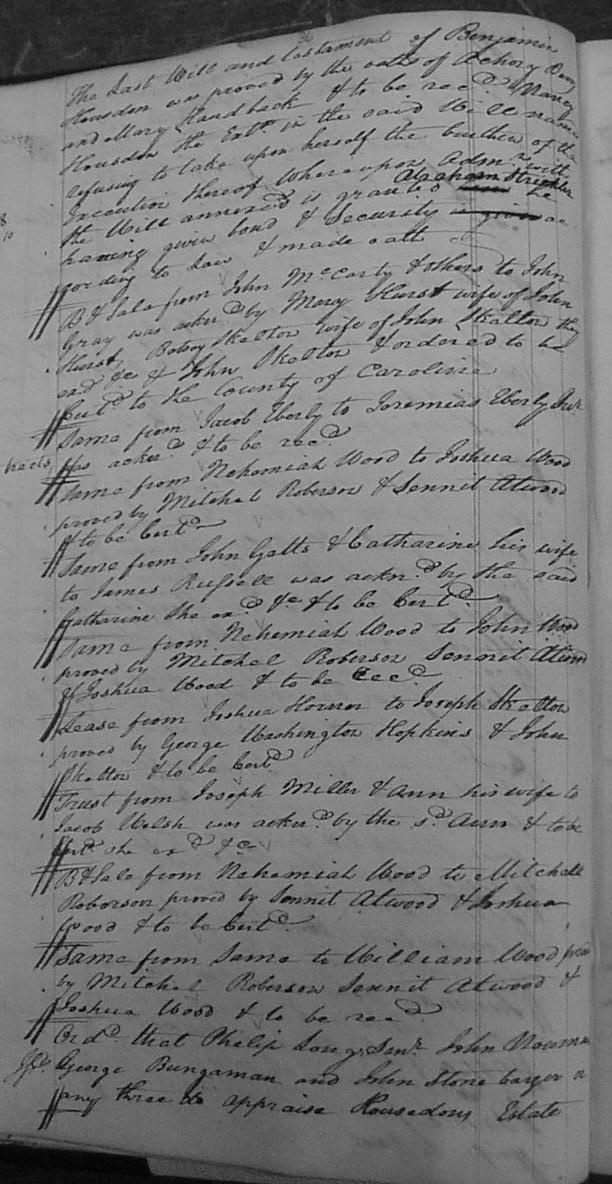 The Last Will and testament of Benjamin
Housdon was proved by the oaths of Achory Berry
and Mary Handback & to be recd. Nancy
Housdon the Extx. in the said Will named
refusing to take upon herself the burthen of the
Execution thereof Whereupon Admn. with
the Will annexed is granted Abraham Strickler he
having given bond & Security ac
cording to Law & made oath
B & Sale from John McCarty & others to John
Gray was acknd. by Mary Hurst wife of John
Hurst, Boboy Skelton wife of John Skelton they
exd. &c & John Skelton & ordered to be
Certd. to the County of Caroline
Same from Jacob Eberly to Jeremias Eberly Junr.
was acknd. & to be recd.
Same from Nehemiah Wood to Joshua Wood
proved by Mitchel Roberson & Sennit Atwood
& to be Certd.
Same from John Gatts & Catharine his wife
to James Russell was acknd. by the said
Catharine she exd. &c & to be Certd.
Same from Nehemiah Wood to John Wood
proved by Mitchel Roberson Sennit Atwood
& Joshua Wood & to be recd.
Lease from Joshua Hornor to Joseph Skelton
proved by George Washington Hopkins & John
Skelton & to be Certd.
Trust from Joseph Miller & Ann his wife to
Jacob Welsh was acknd. by the sd. Ann & to be
Certd. she exd. &c
B & Sale from Nehemiah Wood to Mitchell
Roborson proved by Sennit Atwood & Joshua
Wood & to be Certd.
Same from Same to William Wood proved
by Mitchel Roberson Sennit Atwood &
Joshua Wood & to be recd.
Ordd. that Philip Long Senr. John Nowman
George Bungaman and John Stone barger or
any three do appraise Housedons Estate